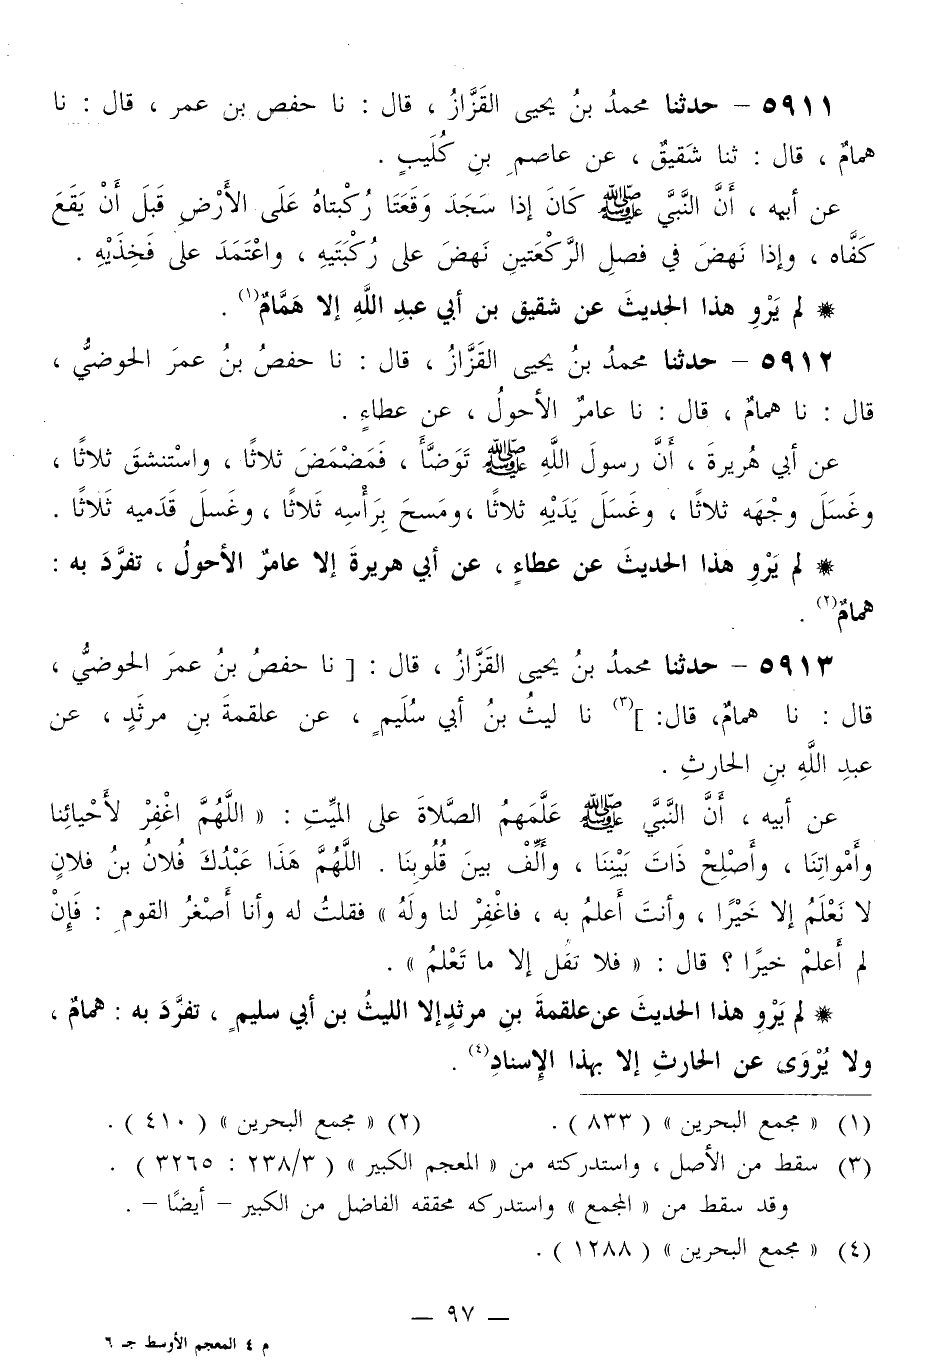 ٥٩١١ – حدثنا محمدُ بنُ يحيى القَزَّازُ ، قال : نا حفص بن عمر ، قال : نا
همامٌ ، قال : ثنا شَقيقٌ ، عن عاصمِ بنِ كُلَيبٍ .
عن أبيه ، أَنَّ النَّبيَّ ﷺ كَانَ إذا سَجَدَ وَقَعَتَا رُكْبتاهُ عَلَى الأَرْضِ قَبلَ أَنْ يَقَعَ
كَفَّاه ، وإذا نَهضَ في فصلِ الرَّكْعَتينِ نَهضَ على رُكْبَتَيهِ ، واعْتَمَدَ على فَخِذَيْهِ .
* لم يَرْوِ هذا الحديثَ عن شقيق بن أبي عبدِ اللَّهِ إلا هَمَّامٌ(١) .
٥٩١٢ – حدثنا محمدُ بنُ يحيى القَزَّازُ ، قال : نا حفصُ بنُ عمرَ الحوضيُّ ،
قال : نا همامٌ ، قال : نا عامرٌ الأحولُ ، عن عطاءٍ .
عن أبي هُريرةَ ، أَنَّ رسولَ اللَّهِ ﷺ تَوَضَّأَ ، فَمَضْمَضَ ثلاثًا ، واسْتنشقَ ثلاثًا ،
وغَسَلَ وجْهَه ثلاثًا ، وغَسَلَ يَدَيْهِ ثلاثًا ،ومَسحَ بِرَأْسِه ثَلاثًا ،وغَسلَ قَدَميه ثَلاثًا .
* لم يَرْوِ هذا الحديثَ عن عطاءٍ ، عن أبي هريرةَ إلا عامرٌ الأحولُ ، تفرَّدَ به :
همامٌ(٢) .
٥٩١٣ – حدثنا محمدُ بنُ يحيى القَزَّازُ ، قال : [ نا حفصُ بنُ عمرَ الحوضيُّ ،
قال : نا همامٌ، قال: ](٣) نا ليثُ بنُ أبي سُلَيمٍ ، عن علقمةَ بنِ مرثَدٍ ، عن
عبدِ اللَّهِ بنِ الحارثِ .
عن أبيه ، أَنَّ النَّبيَّ ﷺ عَلَّمَهمُ الصَّلاةَ على الميِّتِ : « اللَّهُمَّ اغْفِرْ لأَحْيائِنا
وأَمْواتِنَا ، وأَصْلِحْ ذَاتَ بَيْنِنَا ، وأَلِّفْ بينَ قُلُوبِنَا . اللَّهُمَّ هَذَا عَبْدُكَ فُلانُ بنُ فلانٍ
لا نَعْلَمُ إلا خَيْرًا ، وأنتَ أَعلمُ به ، فاغْفِرْ لنا ولَهُ » فقلتُ له وأنا أَصْغَرُ القومِ : فَإِنْ
لم أَعلمْ خيرًا ؟ قال : « فلا تقُل إلا ما تَعْلمُ » .
* لم يَرْوِ هذا الحديثَ عن علقمةَ بنِ مرثدٍ إلا الليثُ بن أبي سليمٍ ، تفرَّدَ به : همامٌ ،
ولا يُرْوَى عن الحارثِ إلا بهذا الإسنادِ(٤) .
(١) « مجمع البحرين » ( ٨٣٣ ) . (٢) « مجمع البحرين » ( ٤١٠ ) .
(٣) سقط من الأصل ، واستدركته من « المعجم الكبير » ( ٢٣٨/٣ : ٣٢٦٥ ) .
وقد سقط من « المجمع » واستدركه محققه الفاضل من الكبير – أيضًا – .
(٤) « مجمع البحرين » ( ١٢٨٨ ) .
— ٩٧ —
م ٤ المعجم الأوسط جـ ٦